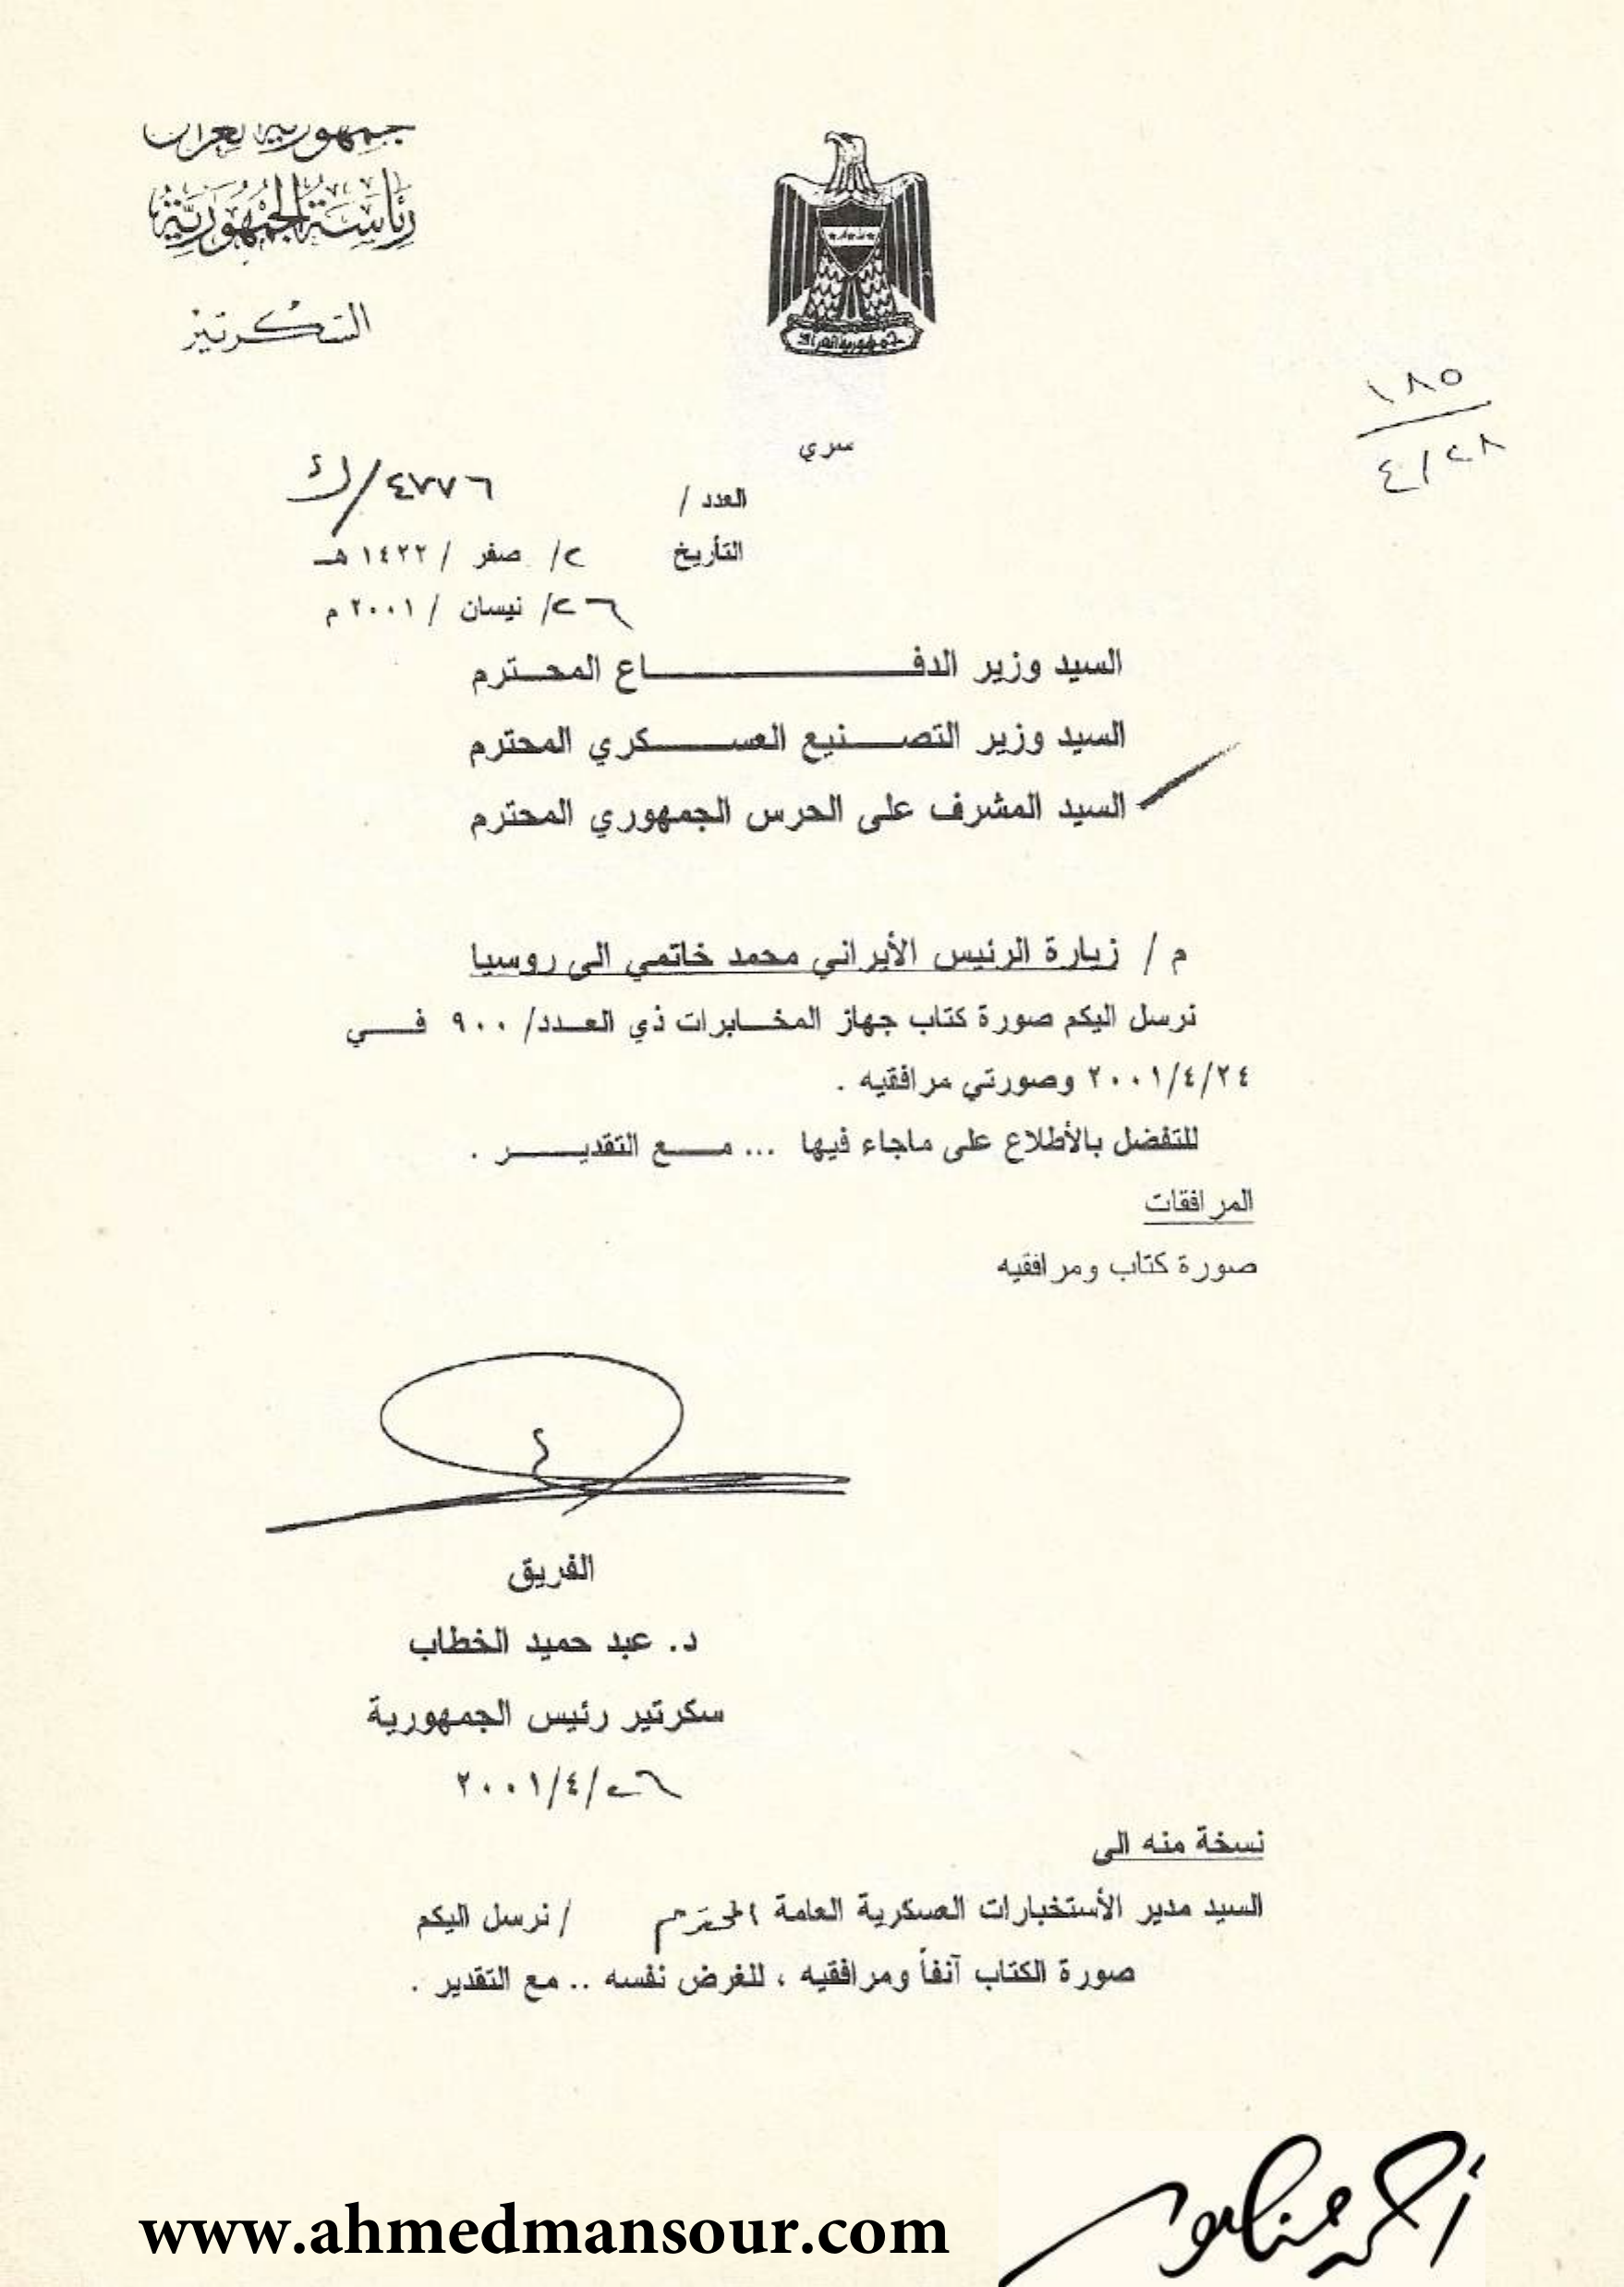 جمهورية العراق
رئاسة الجمهورية
السكرتير
جمهورية العراق
١٨٥
٤/٢٨
سري
العدد / ٤٧٧٦/ك
التأريخ ٢/ صفر / ١٤٢٢ هـ
٢٦/ نيسان / ٢٠٠١ م
السيد وزير الدفـــــــــــاع المحـترم
السيد وزير التصـــنيع العســـــكري المحترم
السيد المشرف على الحرس الجمهوري المحترم
م / زيارة الرئيس الأيراني محمد خاتمي الى روسيا
نرسل اليكم صورة كتاب جهاز المخـــابرات ذي العـــدد/ ٩٠٠ فـــي
٢٠٠١/٤/٢٤ وصورتي مرافقيه .
للتفضل بالأطلاع على ماجاء فيها ... مـــع التقديـــــر .
المرافقات
صورة كتاب ومرافقيه
الفريق
د. عبد حميد الخطاب
سكرتير رئيس الجمهورية
٢٠٠١/٤/٢٦
نسخة منه الى
السيد مدير الأستخبارات العسكرية العامة المحترم / نرسل اليكم
صورة الكتاب آنفاً ومرافقيه ، للغرض نفسه .. مع التقدير .
www.ahmedmansour.com
أحمد منصور